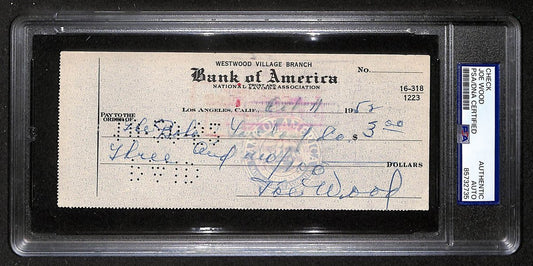 WESTWOOD VILLAGE BRANCH
Bank of America
NATIONAL TRUST AND SAVINGS ASSOCIATION
No.
16-318
1223
LOS ANGELES, CALIF., Oct 11 1952
PAY TO THE
ORDER OF
$ 3 00
Three and no/100 DOLLARS
Joe Wood
CHECK
JOE WOOD
PSA/DNA CERTIFIED
PSA
AUTHENTIC
AUTO
85732735